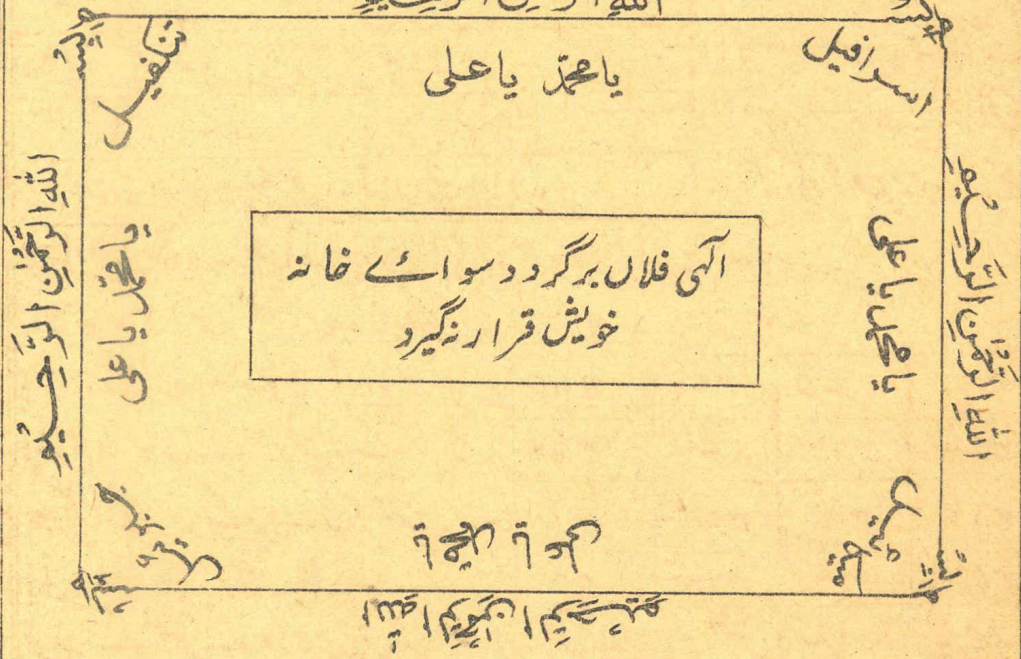 بِسْمِ اللهِ الرَّحْمٰنِ الرَّحِيْمِ
اسرافیل
یا محمّد یا علی
بِسْمِ اللهِ الرَّحْمٰنِ الرَّحِيْمِ
یا محمّد یا علی
الٰہی فلاں برگردد سوائے خانہ
خویش قرار نگیرد
یا محمّد یا علی
بِسْمِ اللهِ الرَّحْمٰنِ الرَّحِيْمِ
یا محمّد یا علی
بِسْمِ اللهِ الرَّحْمٰنِ الرَّحِيْمِ